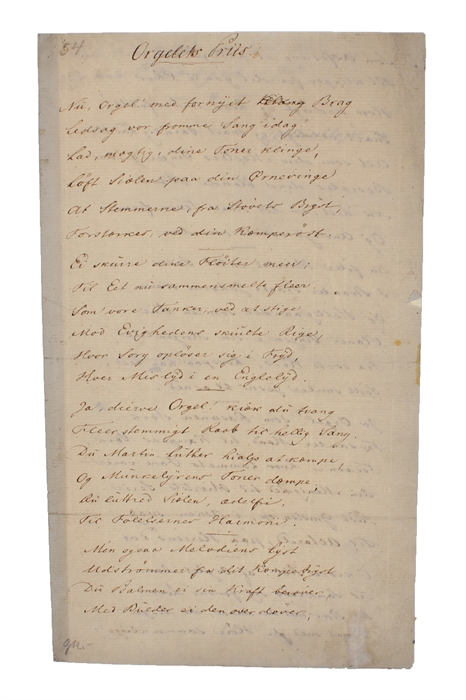 54
Orgelets Priis.
Nu, Orgel! med fornÿet Brag
Ledsag vor fromme Sang idag!
Lad, mægtig, dine Toner klinge,
Løft Siælen paa din Ørnevinge
At Stemmerne, fra Støvets Brÿst,
Forstærkes, ved din Kæmperøst.
Ei skurre dine Fløiter meer;
Til Eet nu sammensmelte fleer
Som vore Tanker, ved at stige
Mod Evighedens skiulte Rige,
Hvor Sorg opløser sig i Frÿd,
Hver Mislÿd i en Englelÿd.
Ja, diærve Orgel, kiæk du tvang
Fleerstemmigt Raab til hellig Sang.
Du Martin Luther hialp at kæmpe
Og Munkelÿrens Toner dæmpe,
Du luttred Siælen,
Til Følelsernes Harmoni.
Men Melodiens Lÿst
Udstrømmer fra det Kæmpebrÿst
Du Psalmen ei sin Kraft berøver
Med Bulder ei den overdøver,